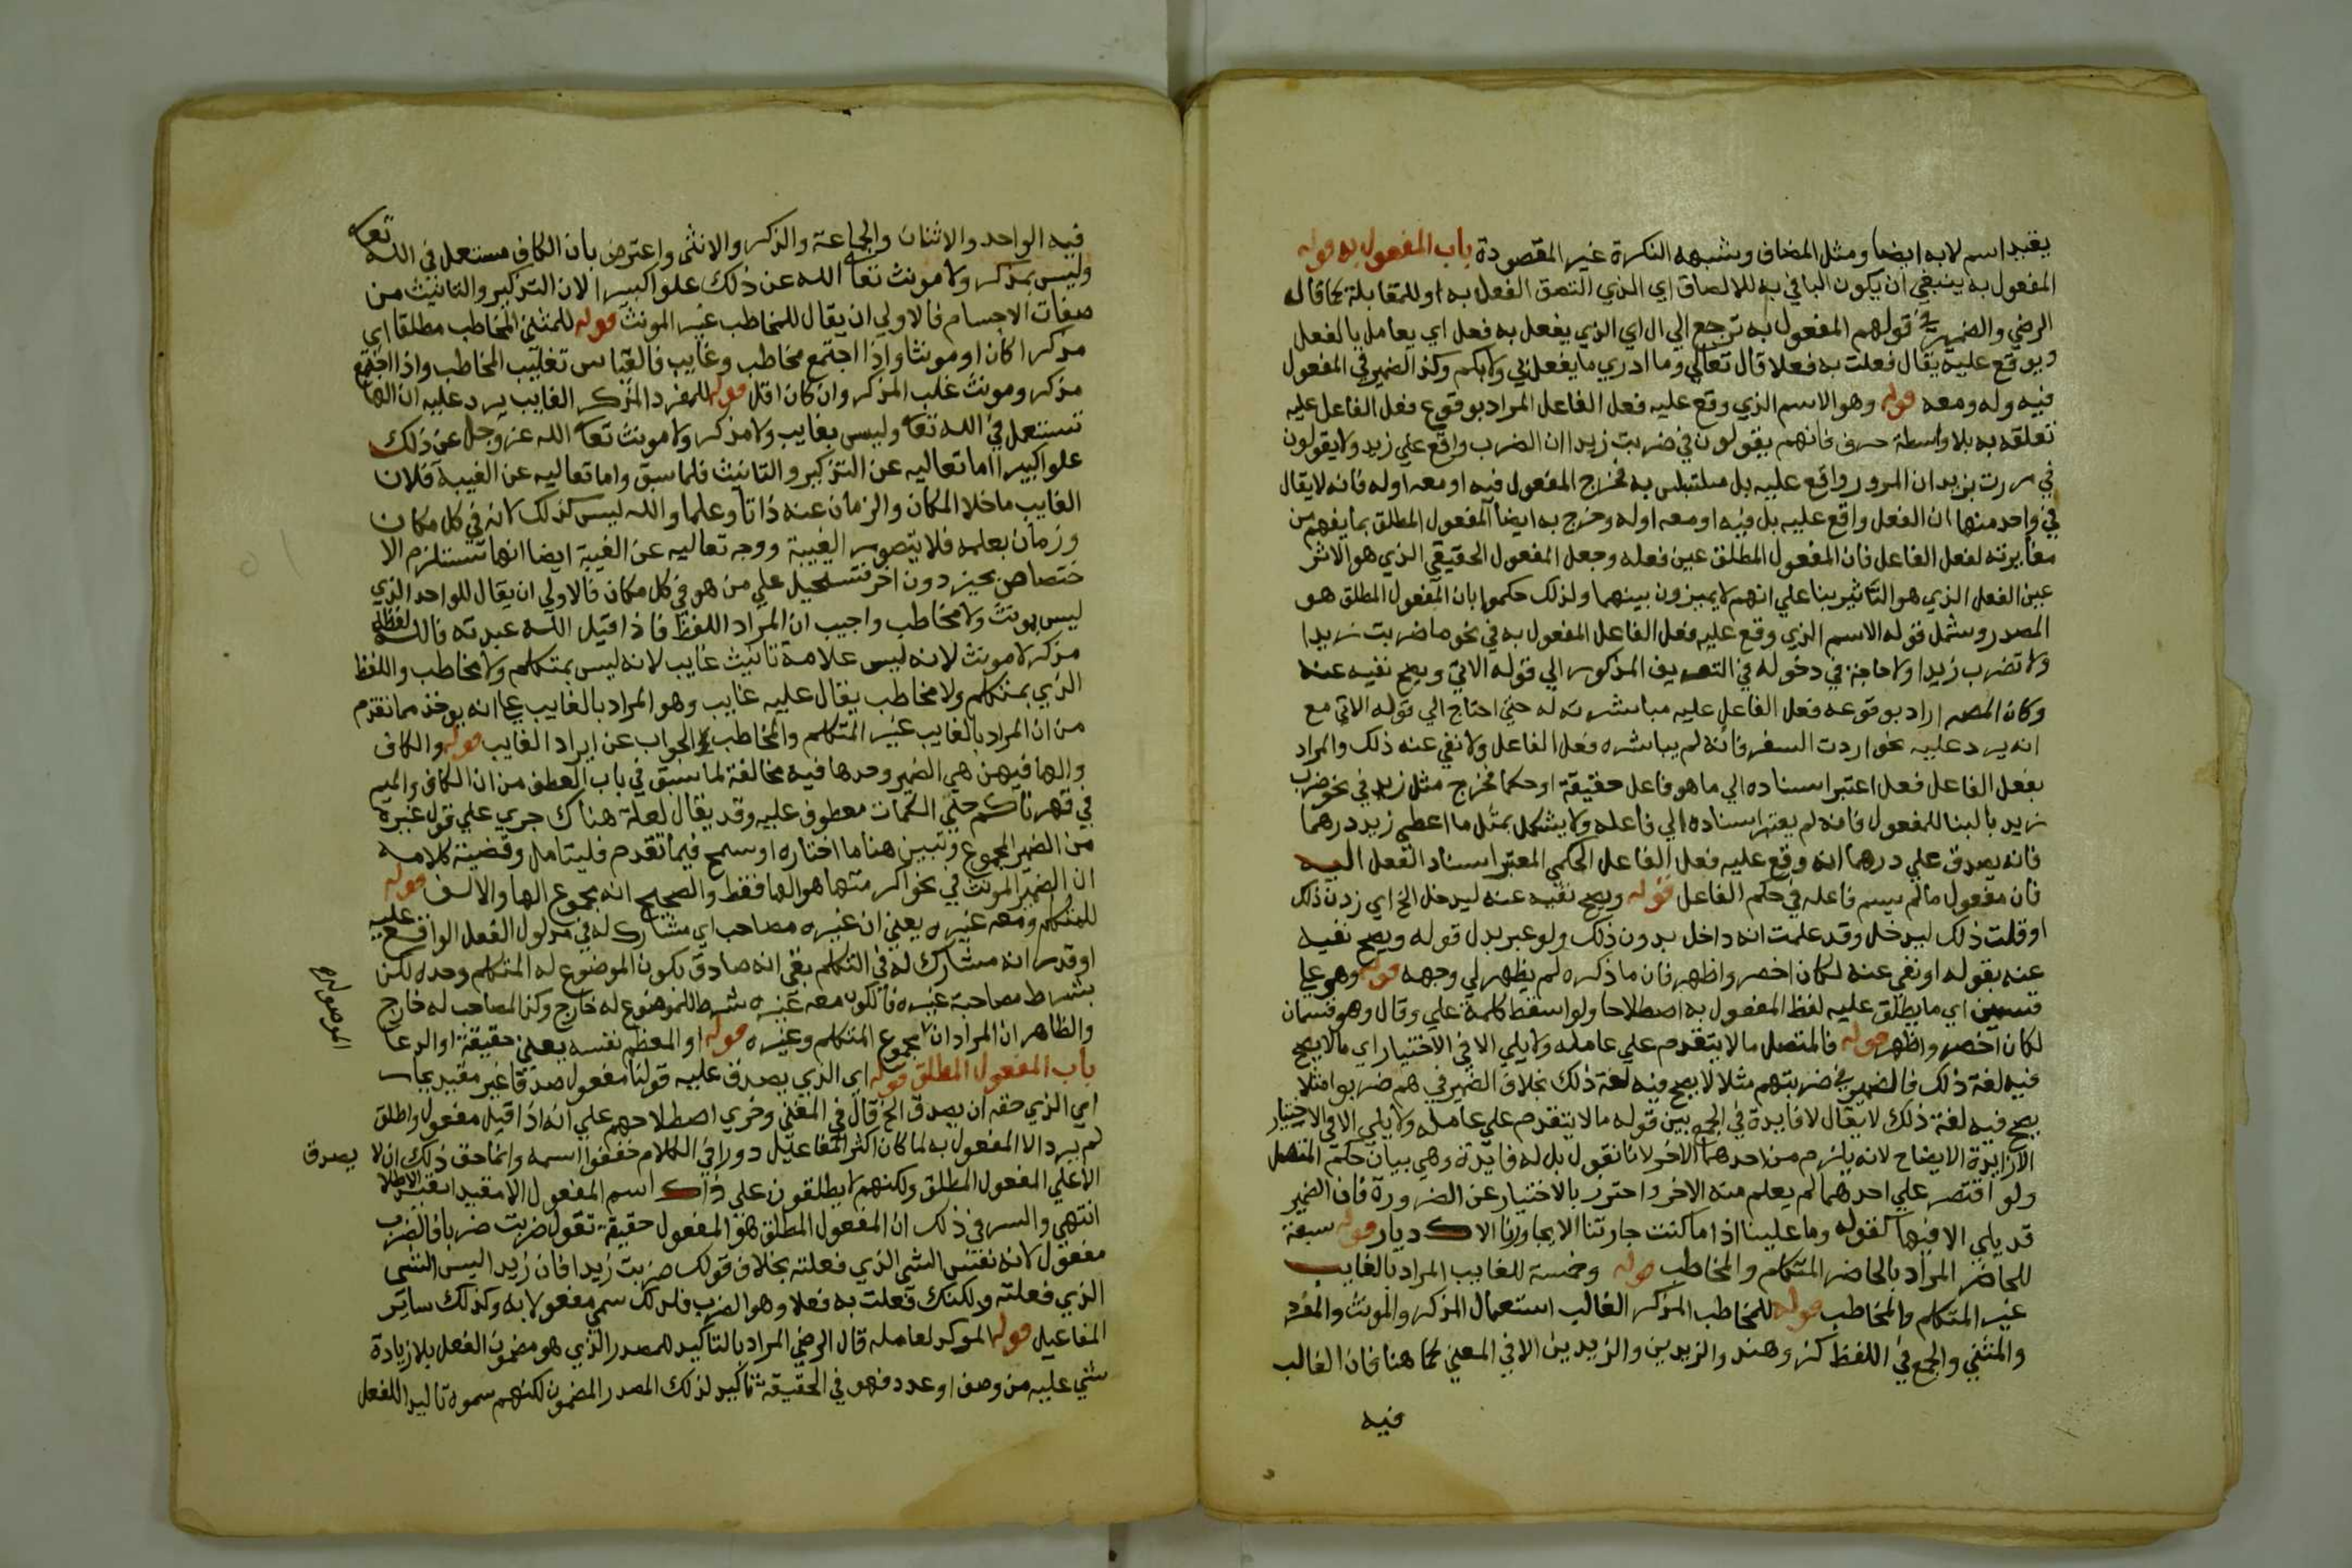 يقيد اسم لا به ايضا ومثل المضاف وشبهه النكرة غير المقصودة باب المفعول به قوله
المفعول به ينبغي ان يكون البا في به للالصاق اي الذي التصق الفعل به او للمقابلة كما قاله
الرضي والضمير في قولهم المفعول به ترجع الي ال اي الذي يفعل به فعل اي يعامل بالفعل
ويوقع عليه يقال فعلت به فعلا قال تعالي وما ادري ما يفعل بي ولا بكم وكذا الضمير في المفعول
فيه وله ومعه قوله وهو الاسم الذي وقع عليه فعل الفاعل المراد بوقوع فعل الفاعل عليه
تعلقه به بلا واسطة حرف فانهم يقولون في ضربت زيدا ان الضرب واقع علي زيد ولا يقولون
في مررت بزيد ان المرور واقع عليه بل ملتبس به فخرج المفعول فيه او معه او له فانه لا يقال
في واحد منها ان الفعل واقع عليه بل فيه او معه او له وخرج به ايضا المفعول المطلق بما يفهم من
مغايرته لفعل الفاعل فان المفعول المطلق عين فعله وجعل المفعول الحقيقي الذي هو الاثر
عين الفعل الذي هو التاثير بنا علي انهم لا يميزون بينهما ولذلك حكموا بان المفعول المطلق هو
المصدر وشمل قوله الاسم الذي وقع عليه فعل الفاعل المفعول به في نحو ما ضربت زيدا
ولا تضرب زيدا ولا حاجة في دخوله في التعريف المذكور الي قوله الاتي ويصح نفيه عنه
وكان المصـ اراد بوقوعه فعل الفاعل عليه مباشرته له حتي احتاج الي قوله الاتي مع
انه يرد عليه نحو اردت السفر فانه لم يباشره فعل الفاعل ولا نفي عنه ذلك والمراد
بفعل الفاعل فعل اعتبر اسناده الي ما هو فاعل حقيقة او حكما فخرج مثل زيد في نحو ضرب
زيد بالبنا للمفعول فانه لم يعتبر اسناده الي فاعله ولا يشكل بمثل ما اعطي زيد درهما
فانه يصدق علي درهما انه وقع عليه فعل الفاعل الحكمي المعتبر اسناد الفعل اليه
فان مفعول ما لم يسم فاعله في حكم الفاعل قوله ويصح نفيه عنه ليدخل الخ اي زدت ذلك
او قلت ذلك ليدخل وقد علمت انه داخل بدون ذلك ولو عبر بدل قوله ويصح نفيه
عنه بقوله او نفي عنه لكان اخصر واظهر فان ما ذكره لم يظهر لي وجهه قوله وهو علي
قسمين اي ما يطلق عليه لفظ المفعول به اصطلاحا ولو اسقط كلمة علي وقال وهو قسمان
لكان اخصر واظهر قوله فالمتصل ما لا يتقدم علي عامله ولا يلي الا في الاختيار اي ما لا يصح
فيه لغة ذلك فالضمير في ضربتهم مثلا لا يصح فيه لغة ذلك بخلاف الضمير في هم ضربوا مثلا
يصح فيه لغة ذلك لا يقال لا فايدة في الجمع بين قوله ما لا يتقدم علي عامله ولا يلي الا في الاختيار
الا زايدة الايضاح لانه يلزم من احدهما الاخر لانا نقول بل له فايدة وهي بيان حكم المتصل
ولو اقتصر علي احدهما لم يعلم منه الاخر واحترز بالاختيار عن الضرورة فان الضمير
قد يلي الا فيها كقوله وما علينا اذا ما كنت جارتنا الا يجاورنا الاك ديار قوله سبعة
للحاضر المراد بالحاضر المتكلم والمخاطب قوله وخمسة للغايب المراد بالغايب
غير المتكلم والمخاطب قوله للمخاطب المذكر الغالب استعمال المذكر والمونث والمفرد
والمثني والجمع في اللفظ كزيد وهند والزيدين والزيدين الا في المعني كما هنا فان الغالب
فيه
فيه الواحد والاثنان والجماعة والذكر والانثي واعترض بان الكاف مستعمل في الله تعا
وليس بمذكر ولا مونث تعا الله عن ذلك علوا كبيرا لان التذكير والتانيث من
صفات الاجسام فالاولي ان يقال للمخاطب غير المونث قوله للمثني المخاطب مطلقا اي
مذكرا كان او مونثا واذا اجتمع مخاطب وغايب فالقياس تغليب المخاطب واذا اجتمع
مذكر ومونث غلب المذكر وان كان اقل قوله للمفرد المذكر الغايب يرد عليه ان الها
تستعمل في الله تعا وليس بغايب ولا مذكر ولا مونث تعا الله عز وجل عن ذلك
علوا كبيرا اما تعاليه عن التذكير والتانيث فلما سبق واما تعاليه عن الغيبة فلان
الغايب ما خلا المكان والزمان عنه ذاتا وعلما والله ليس كذلك لانه في كل مكان
وزمان بعلمه فلا يتصور الغيبة ووجه تعاليه عن الغيبة ايضا انها تستلزم الا
ختصاص بحيز دون اخر فتستحيل علي من هو في كل مكان فالاولي ان يقال للواحد الذي
ليس بمونث ولا مخاطب واجيب ان المراد اللفظ فاذا قيل الله عبدته فالله لفظه
مذكر لا مونث لانه ليس علامة تانيث غايب لانه ليس بمتكلم ولا مخاطب واللفظ
الذي بمتكلم ولا مخاطب يقال عليه غايب وهو المراد بالغايب علي انه يوخذ مما تقدم
من ان المراد بالغايب غير المتكلم والمخاطب الجواب عن ايراد الغايب قوله والكاف
والها فيهن هي الضمير وحدها فيه مخالفة لما سبق في باب العطف من ان الكاف والميم
في قهرناكم حتي الكمات معطوف عليه وقد يقال لعله هناك جري علي قول غيره
من الضمير المجموع وتبين هنا ما اختاره او سمح فيما تقدم فليتامل وقضية كلامه
ان الضمير المونث في نحو اكرمتها هو الها فقط والصحيح انه مجموع الها والالف قوله
للمتكلم ومعه غيره يعني ان غيره مصاحب اي مشارك له في مدلول الفعل الواقع عليه
او قدر انه مشارك له في التكلم بقي انه صادق بكون الموضوع له المتكلم وحده لكن
بشرط مصاحبة غيره فالكون معه غيره شرط للموضوع له خارج وكذا المصاحب له خارج
والظاهر ان المراد ان مجموع المتكلم وغيره قوله او المعظم نفسه يعني حقيقة او ادعا
باب المفعول المطلق قوله اي الذي يصدق عليه قولنا مفعول صدقا غير مقيد بجار
اي الذي حقه ان يصدق الخ قال في المغني وجري اصطلاحهم علي انه اذا قيل مفعول واطلق
لم يرد الا المفعول به لما كان اكثر المفاعيل دورا في الكلام خففوا اسمه وانما حق ذلك ان لا يصدق
الا علي المفعول المطلق ولكنهم لا يطلقون علي ذاك اسم المفعول الا مقيدا بقيد الاطلا
انتهي والسر في ذلك ان المفعول المطلق هو المفعول حقيقة تقول ضربت ضربا فالضرب
مفعول لانه نفس الشي الذي فعلته بخلاف قولك ضربت زيدا فان زيدا ليس الشي
الذي فعلته ولكنك فعلت به فعلا وهو الضرب فلذلك سمي مفعولا به وكذلك ساير
المفاعيل قوله الموكد لعامله قال الرضي المراد بالتاكيد للمصدر الذي هو مضمون الفعل بلا زيادة
شي عليه من وصف او عدد فهو في الحقيقة تاكيد لذلك المصدر المضمون لكنهم سموه تاكيدا للفعل